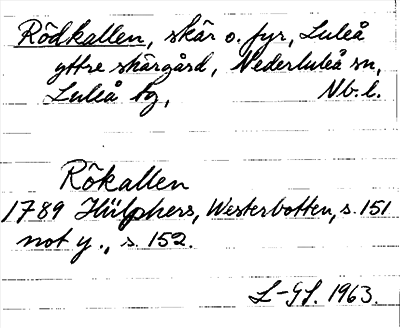 Rödkallen, skär o. fyr, Luleå
yttre skärgård, Nederluleå sn,
Luleå tg, Nb. l.
Rökallen
1789 Hülphers, Westerbotten, s. 151
not y., s. 152.
L-GL. 1963.